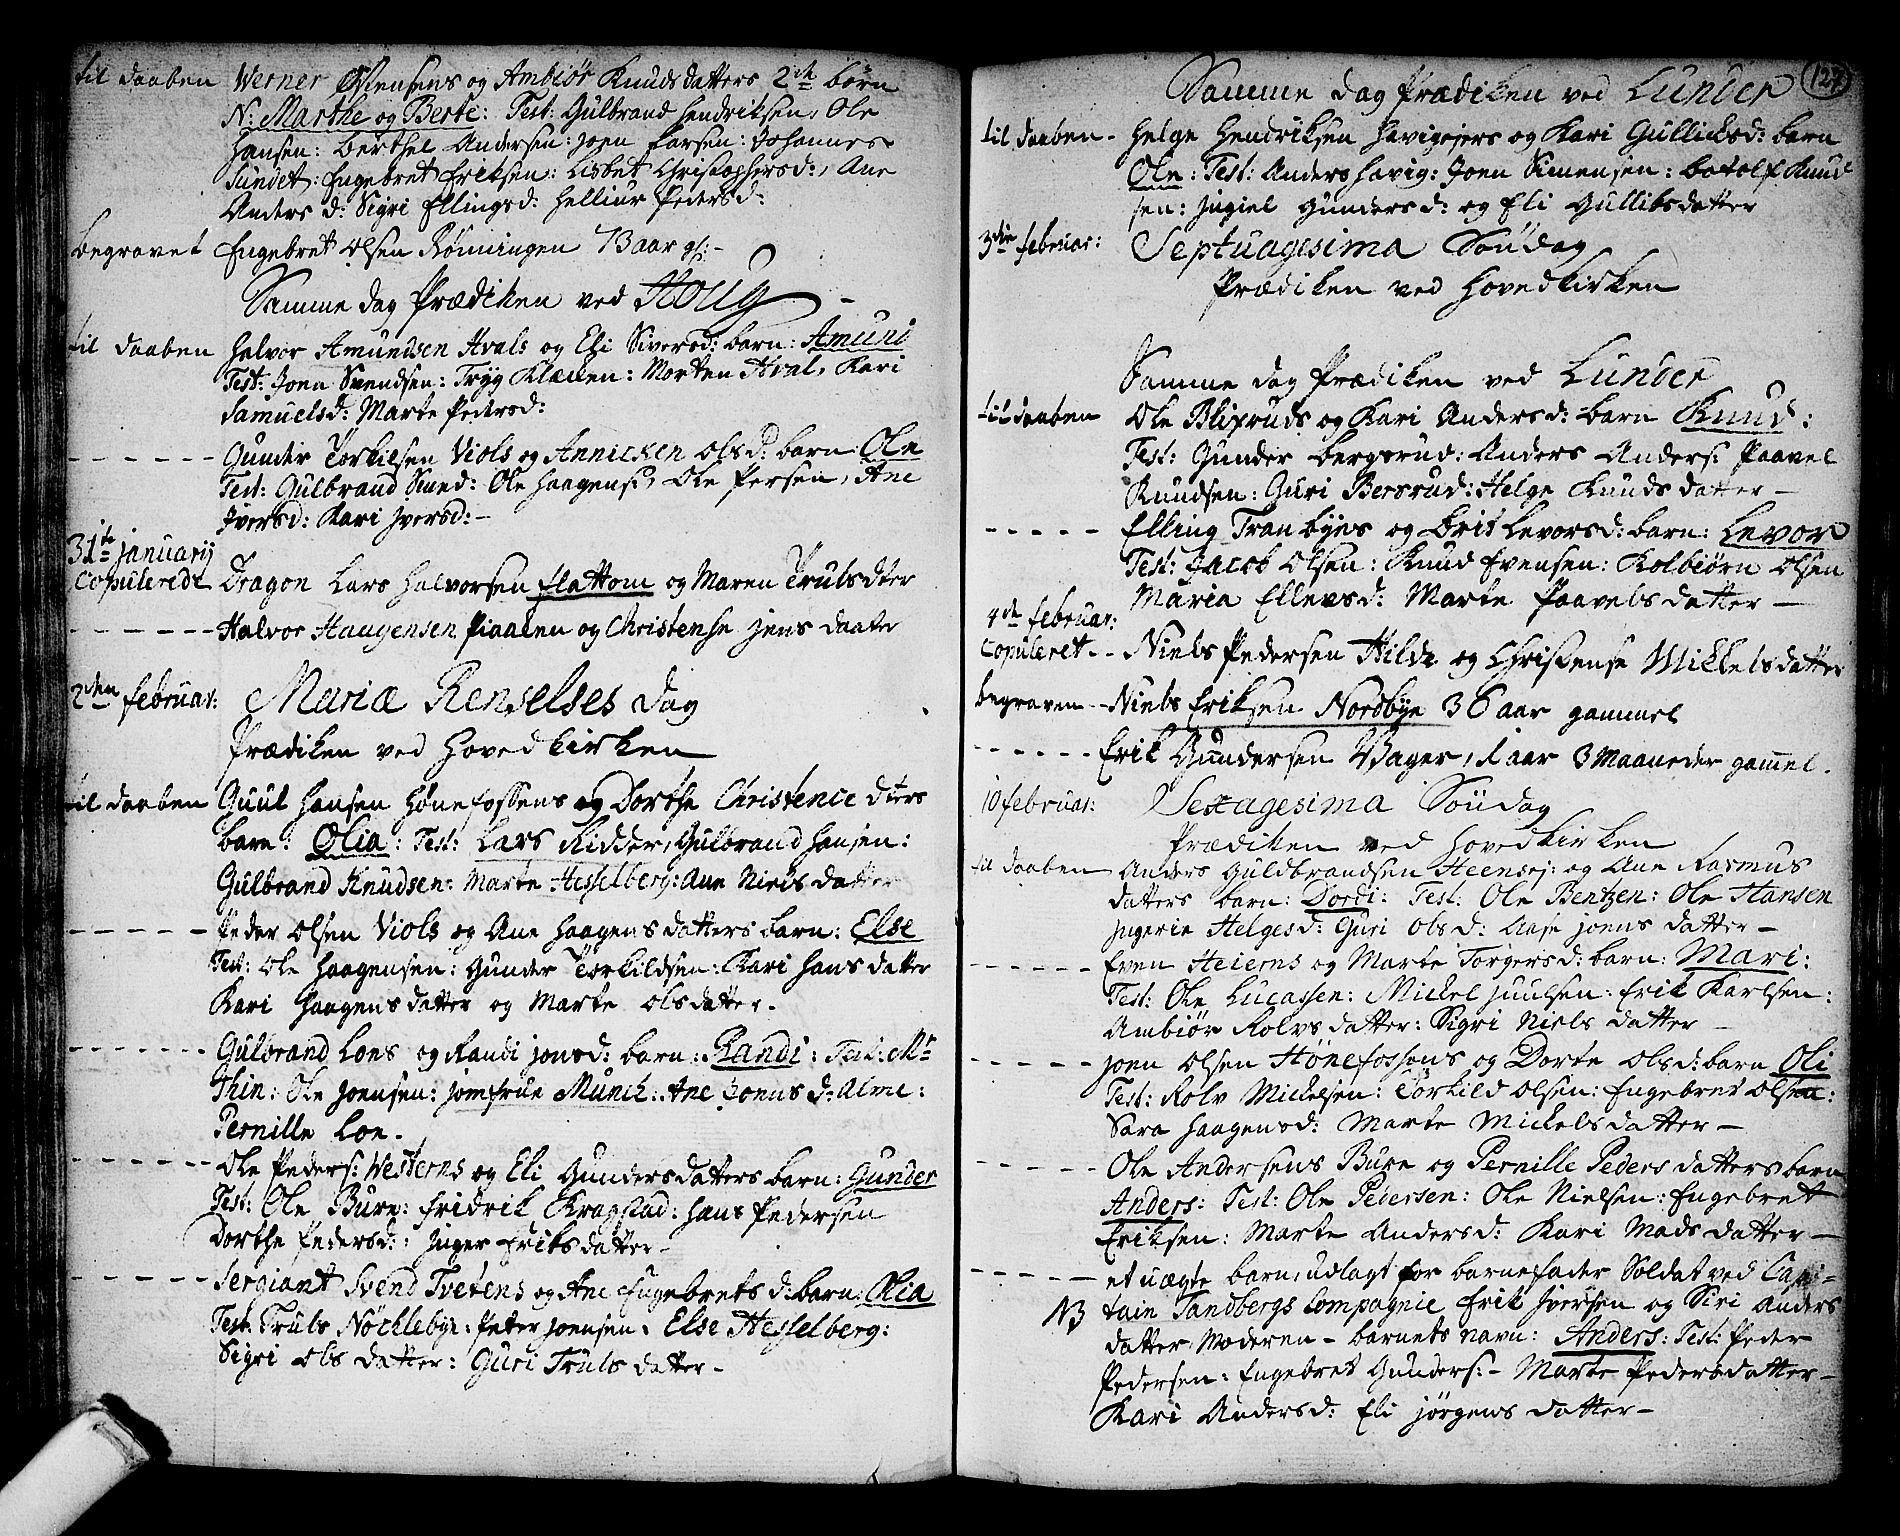 til daaben Werner Steensens og Ambiör Knudsdatters 2de börn
N: Marthe og Berte: Test: Gulbrand Hendriksen, Ole
Hansen: Berthel Andersen: Joen Larsen: Johannes
Sundet: Engebret Eriksen: Lisbet Christophersd:, Ane
Anders d: Sigri Ellingsd: Helliur Pedersd:
begravet Engebret Olsen Rönningen 73 aar gl:-
Samme dag Prædiken ved Houg -
til daaben Halvor Amundsen Hvals og Eli Siversd: barn: Amund
Test: Joen Svendsen: Tryg Klæcken: Morten Hval, Kari
Samuelsd: Marte Pedersd:
- - - - - - Gunder Torkilsen Viols og Annicken Olsd: barn: Ole
Test: Gulbrand Smed: Ole Haagens:, Ole Persen, Ane
Iversd: Kari Iversd:-
31te Januarij
Copulerede Dragon Lars Halvorsen Flattom og Maren Truls dter
- - - - - - Halvor Haagensen Piaaken og Christense Jens daater
2den Februar: Mariæ Renselses dag
Prædiken ved Hovedkirken
til daaben Guul Hansen Hönefossens og Dorthe Christence dters
barn: Olia: Test: Lars Ridder, Gulbrand Hansen:
Gulbrand Knudsen: Marte Hesselberg: Ane Niels datter
- - - - - - Peder Olsen Viols og Ane Haagens datters barn: Else
Test: Ole Haagensen: Gunder Torkildsen: Kari Hans datter
Kari Haagens datter og Marte Olsdatter.
- - - - - - Gulbrand Loes og Randi Jonsd: barn: Randi: Test: Mr
Thin: Ole Joensen: Jomfrue Munch: Ane Joens d: Alme:
Pernille Loe.
- - - - - - Ole Peders: Westerns og Eli Gundersdatters barn: Gunder
Test: Ole Bure: Fridrik Kragstad: Hans Pedersen
Dorthe Pedersd:: Inger Eriks datter-
- - - - - - Sergiant Svend Tvetens og Ane Engebrets d: barn: Olia
Test: Truls Nöcklebye: Peter Joensen: Else Hesselberg:
Sigri Ols datter: Guri Truls datter-
127
Samme dag Prædiken ved Lunder
til daaben - Helge Hendriksen Havigejers og Kari Gullichsd: barn
Ole: Test: Anders Havig: Joen Simensen: Botolf Knud
sen: Ingiel Gundersd: og Eli Gullibsdatter
3die Februar: Septuagesima Söndag
Prædiken ved Hovedkirken
Samme dag Prædiken ved Lunder
til daaben Ole Blixruds og Kari Andersd: barn Knud:
Test: Gunder Bergsrud: Anders Anders: Paavel
Knudsen: Guri Bersrud: Helge Knuds datter-
- - - - - Elling Tranbyes og Brit Levorsd: barn: Levor
Test: Jacob Olsen: Knud Evensen: Kolbiörn Olsen
Maria Ellevsd: Marte Paavelsdatter-
4de Februar:
Copuleret - - Niels Pedersen Hilde og Christense Mikkelsdatter
begraven - - Niels Eriksen Nordbye 36 aar gammel
- - - - - - Erik Gundersen Vager, 1 aar 3 Maaneder gamel.
10 Februar: Sexagesima Söndag
Prædiken ved Hovedkirken
til daaben Anders Guldbrandsen Heensej: og Ane Rasmus
datters barn: Dordi: Test: Ole Bentzen: Ole Hansen
Ingerie Helgesd: Guri Olsd: Aase Joens datter-
- - - - - - Even Heierns og Marte Torgersd: barn: Mari:
Test: Ole Lucassen: Mickel Juulsen: Erik Karlsen:
Ambiör Rolvsdatter: Sigri Niels datter -
- - - - - - Joen Olsen Hönefossens og Dorte Olsd: barn Oli
Test: Rolv Mickelsen: Torkild Olsen: Engebret Olsen:
Sara Haagensd: Marte Mickelsdatter -
- - - - - - Ole Andersens Bure og Pernille Peders datters barn
Anders: Test: Ole Pedersen: Ole Nielsen: Engebret
Eriksen: Marte Andersd: Kari Mads datter -
- - - - - - et uægte barn, udlagt for barnefader Soldat ved Capi-
NB tain Tandbergs Compagnie Erik Iversen og Siri Anders
datter Moderen - barnets navn: Anders: Test: Peder
Pedersen: Engebret Gunders:- Marte Pedersdatter-
Kari Andersd: Eli Jörgens datter-